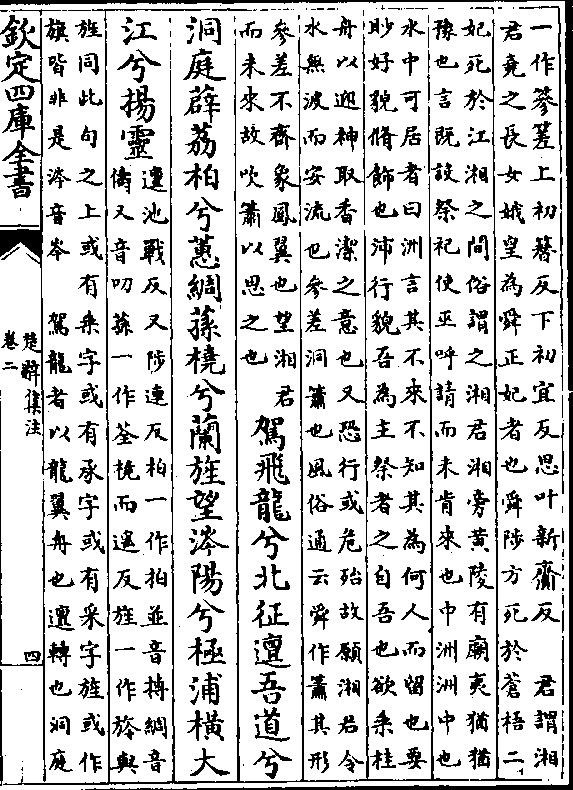 一作篸䇎上初簪反下初宜反思叶新齎反　君謂湘
君堯之長女娥皇為舜正妃者也舜陟方死於蒼梧二
妃死於江湘之間俗謂之湘君湘旁黄陵有廟夷猶猶
豫也言既設祭祀使巫呼請而未肯來也中洲洲中也
水中可居者曰洲言其不來不知其為何人而留也要
眇好貌脩飾也沛行貌吾為主祭者之自吾也欲乘桂
舟以迎神取香潔之意也又恐行或危殆故願湘君令
水無波而安流也參差洞簫也風俗通云舜作簫其形
參差不齊象鳳翼也望湘君
而未來故吹簫以思之也
駕飛龍兮北征邅吾道兮
洞庭薜荔柏兮蕙綢蓀橈兮蘭旌望涔陽兮極浦横大
江兮揚靈
邅池戰反又陟連反柏一作拍並音搏綢音
儔又音叨蓀一作荃橈而遙反旌一作旍與
旌同此句之上或有乘字或有承字或有采字旌或作
旗皆非是涔音岑　駕龍者以龍翼舟也邅轉也洞庭
欽定四庫全書
楚辭集注
卷二
四